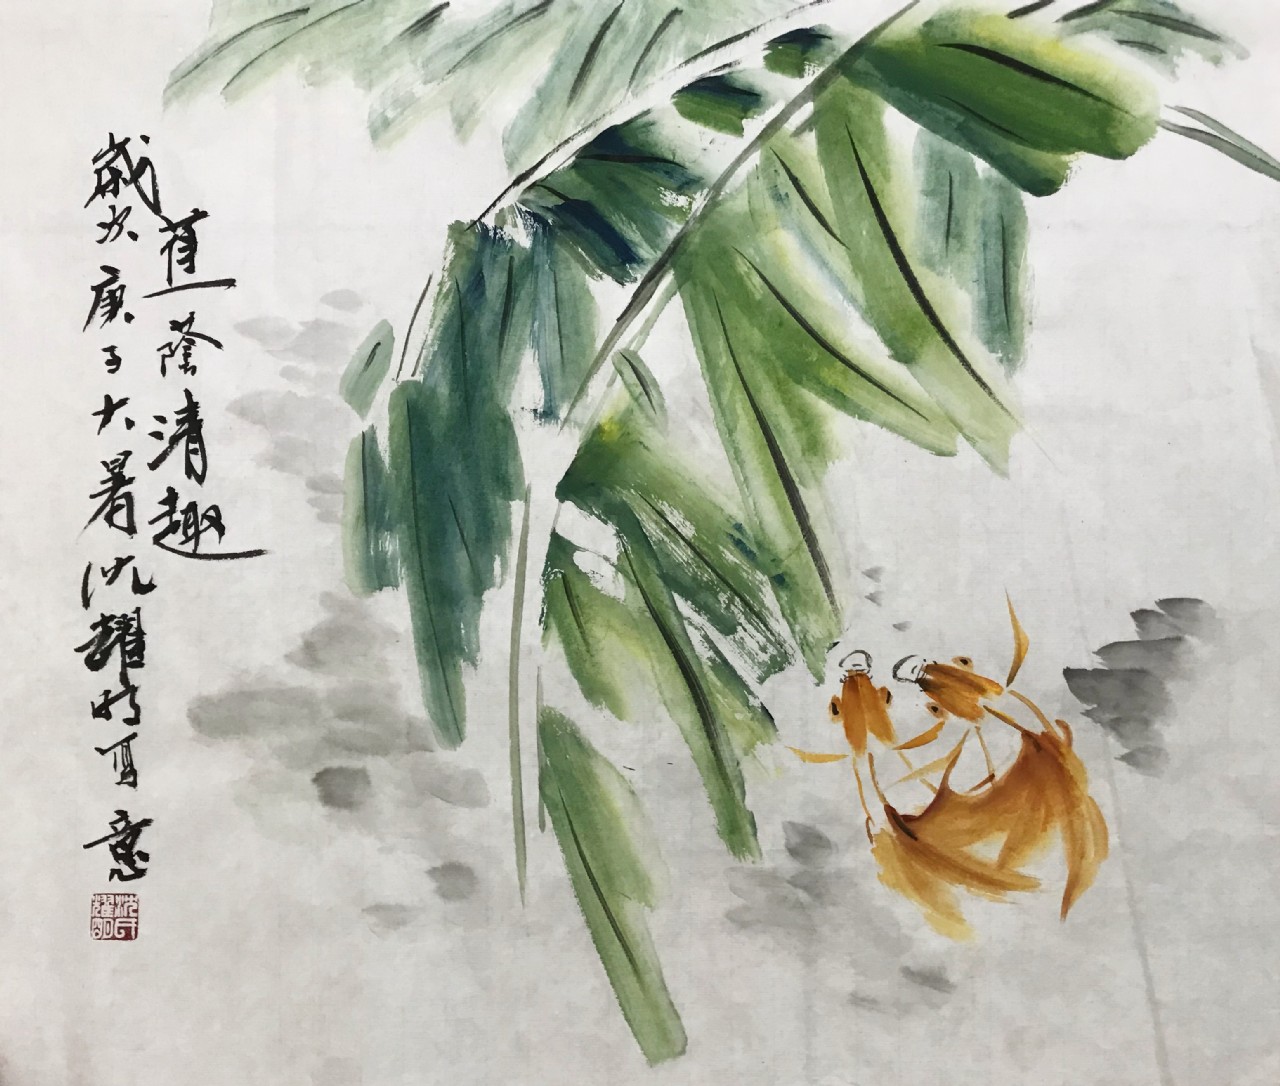 蕉蔭清趣
歲次庚子大暑沈耀明写意
沈氏耀明